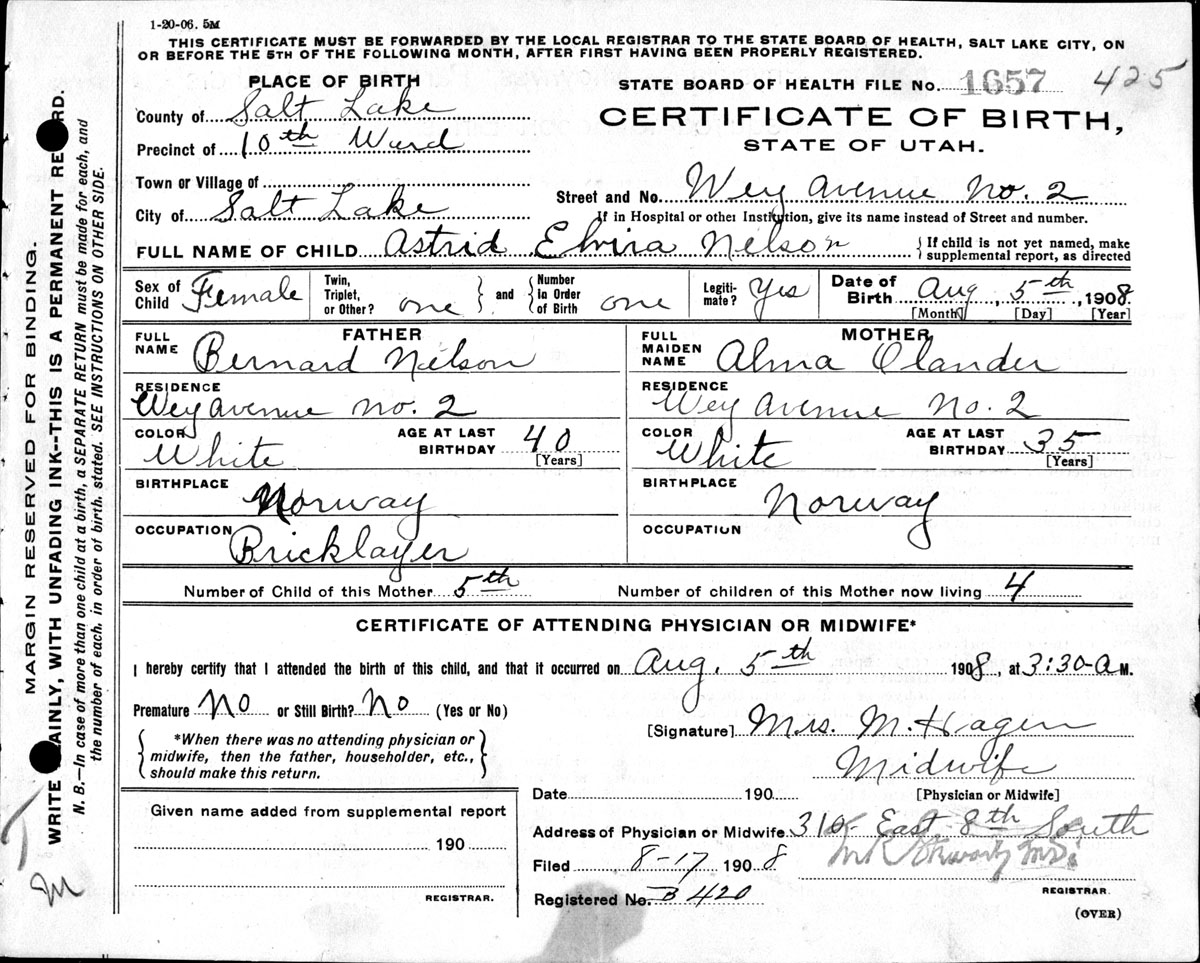 1-20-06. 5M
THIS CERTIFICATE MUST BE FORWARDED BY THE LOCAL REGISTRAR TO THE STATE BOARD OF HEALTH, SALT LAKE CITY, ON
OR BEFORE THE 5TH OF THE FOLLOWING MONTH, AFTER FIRST HAVING BEEN PROPERLY REGISTERED.
PLACE OF BIRTH
STATE BOARD OF HEALTH FILE No. 1657 425
County of Salt Lake
CERTIFICATE OF BIRTH,
Precinct of 10th Ward
STATE OF UTAH.
Town or Village of
Street and No. Wey Avenue No. 2
City of Salt Lake
If in Hospital or other Institution, give its name instead of Street and number.
FULL NAME OF CHILD Astrid Elvira Nelson
{If child is not yet named, make
supplemental report, as directed
Sex of Child Female
Twin, Triplet, or Other? one
and
Number in Order of Birth one
Legiti-mate? Yes
Date of Birth Aug, 5th, 1908.
[Month] [Day] [Year]
FATHER
FULL NAME Bernard Nelson
RESIDENCE
Wey Avenue No. 2
COLOR White
AGE AT LAST BIRTHDAY 40
[Years]
BIRTHPLACE Norway
OCCUPATION Bricklayer
MOTHER
FULL MAIDEN NAME Alma Olander
RESIDENCE
Wey Avenue No. 2
COLOR White
AGE AT LAST BIRTHDAY 35
[Years]
BIRTHPLACE Norway
OCCUPATION
Number of Child of this Mother 5th
Number of children of this Mother now living 4
CERTIFICATE OF ATTENDING PHYSICIAN OR MIDWIFE*
I hereby certify that I attended the birth of this child, and that it occurred on Aug. 5th 1908, at 3:30-A M.
Premature No or Still Birth? No (Yes or No)
{*When there was no attending physician or
midwife, then the father, householder, etc.,
should make this return.}
[Signature] Mrs. M. Hagen
Midwife
[Physician or Midwife]
Date 190
Given name added from supplemental report
190
REGISTRAR.
Address of Physician or Midwife. 310 East 8th South
Filed 8-17 1908
REGISTRAR.
Registered No. B 420
(OVER)
MARGIN RESERVED FOR BINDING.
WRITE PLAINLY, WITH UNFADING INK--THIS IS A PERMANENT RECORD.
N. B.—In case of more than one child at a birth, a SEPARATE RETURN must be made for each, and
the number of each, in order of birth, stated. SEE INSTRUCTIONS ON OTHER SIDE.